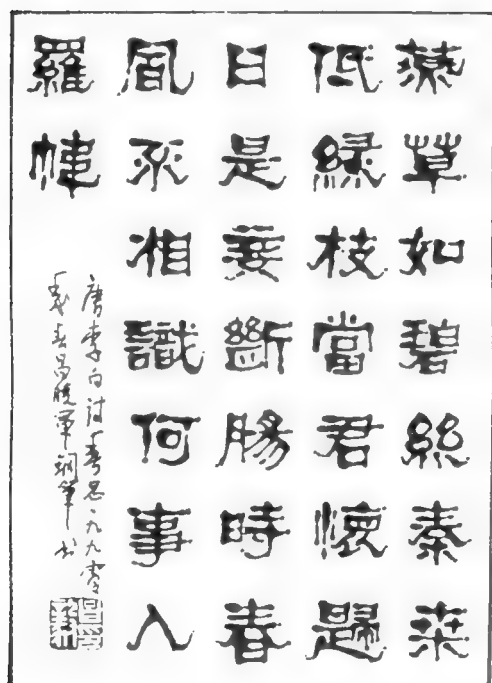 燕草如碧絲秦桑
低緑枝當君懷歸
日是妾斷腸時春
風不相識何事入
羅幃
唐李白詩春思一九九零
春昌晓軍鋼筆书